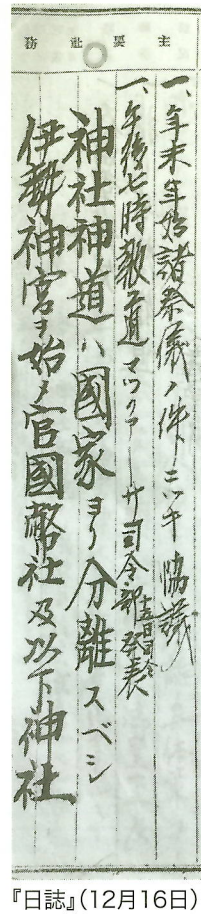 主要社務
一、年末年始諸祭儀ノ件ニツキ協議
一、午後七時報道マツクアーサ司令部十五日日令発表
神社神道ハ國家ヨリ分離スベシ
伊勢神宮ヲ始メ官國幣社及以下神社
『日誌』(12月16日)